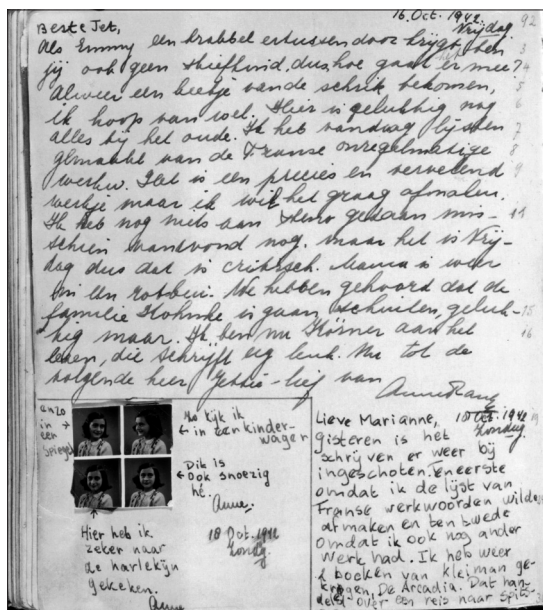 16 Oct. 1942
Vrijdag.
92
Beste Jet,
Als Emmy een krabbel ertussendoor krijgt, ben 3
jij ook geen stiefkind, dus, hoe gaat het er mee? 4
Alweer een beetje van de schrik bekomen, 5
ik hoop van wel. Hier is gelukkig nog 6
alles bij het oude. Ik heb vandaag lijsten 7
gemaakt van de Franse onregelmatige 8
werkw. Het is een precies en vervelend 9
werkje maar ik wil het graag afmaken.
Ik heb nog niets aan steno gedaan mis- 11
schien vanavond nog, maar het is Vrij-
dag dus dat is critisch. Mama is weer
in een rotbui. We hebben gehoord dat de
familie is gaan schuilen, geluk- 15
kig maar. Ik ben nu Körner aan het 16
lezen, die schrijft erg leuk. Nu tot de
volgende keer Jettie-lief van
Anne Frank
enzo
in
een
spiegel
No kijk ik
in een kinder-
wagen
Dit is
ook snoezig
hé.
Anne.
Hier heb ik
zeker naar
de harlekijn
gekeken.
Anne
18 Oct. 1942
Zondag.
Lieve Marianne,
Oct. 1942
Zondag.
gisteren is het
schrijven er weer bij
ingeschoten, eneerste
omdat ik de lijst van
Franse werkwoorden wilde
afmaken en ten twede
omdat ik ook nog ander
werk had. Ik heb weer
2 boeken van kleiman ge-
kregen, De Arcadia. Dat han-
delt over een reis naar Spits-